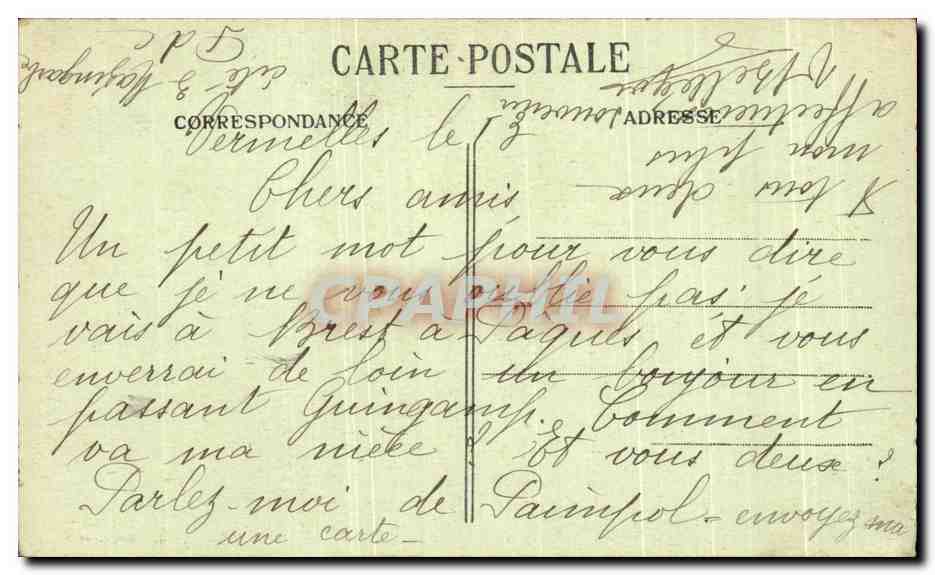 CARTE POSTALE
CORRESPONDANCE
ADRESSE
Vermelles le
Chers amis
Un petit mot pour vous dire
que je ne vous oublie pas. je
vais à Brest à Pâques et vous
enverrai de loin un bonjour en
passant Guingamp. Comment
va ma nièce ? Et vous deux ?
Parlez-moi de Paimpol - envoyez ma
une carte -
A tous deux
mon plus
affectueux souvenir
cité 3 Mazingarbe
P d C
CPAPHIL